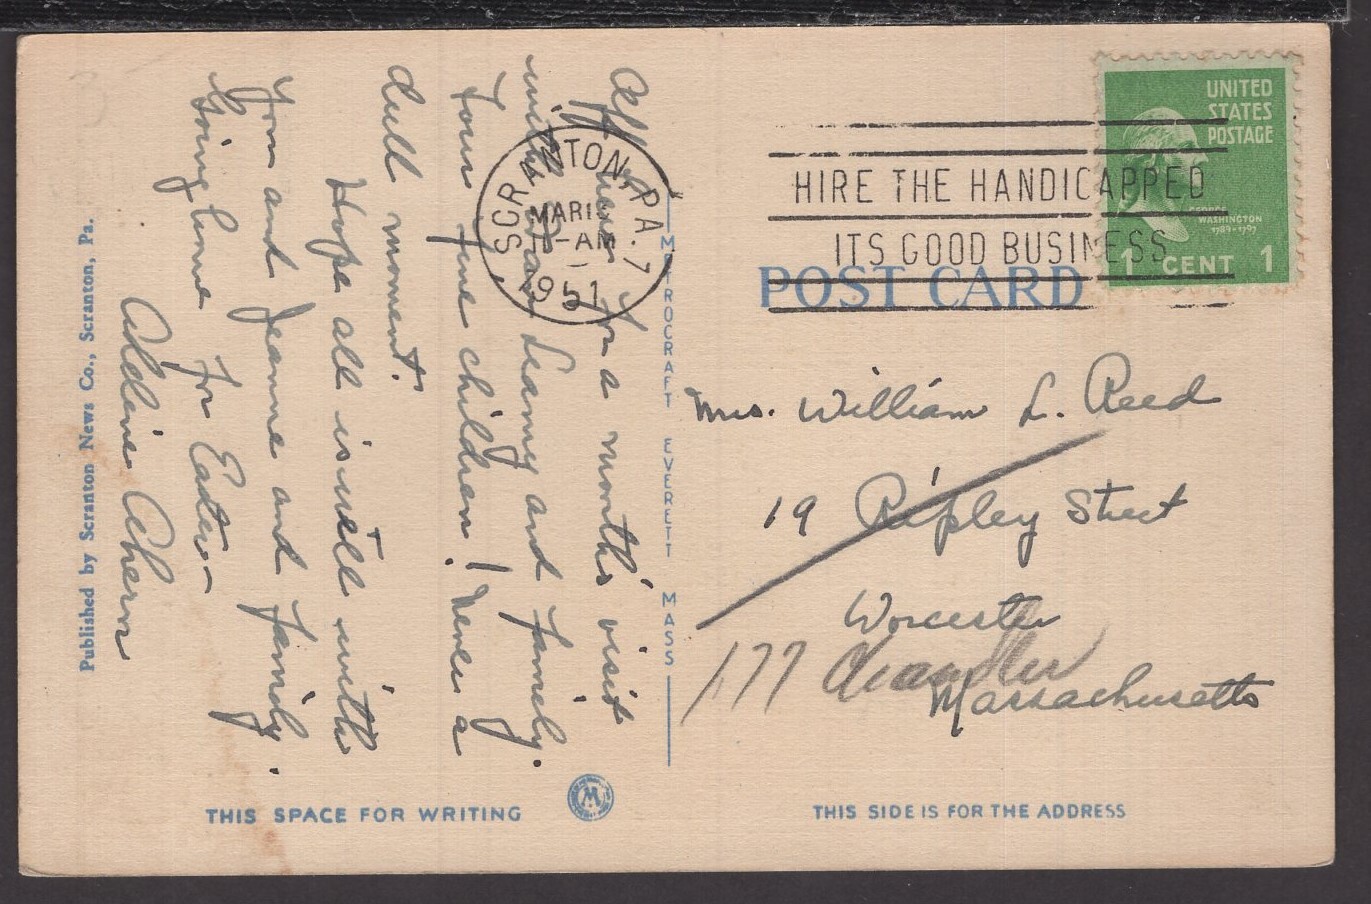 Off here for a month's visit
with Mary Leamy and family.
Four fine children! Never a
dull moment.
Hope all is well with
you and Jeanne and family.
Going home for Easter
Adeline Ahern
Published by Scranton News Co., Scranton, Pa.
SCRANTON, PA. 7
MAR 15
AM
1951
METROCRAFT EVERETT MASS
HIRE THE HANDICAPPED
ITS GOOD BUSINESS
UNITED
STATES
POSTAGE
GEORGE
WASHINGTON
1789-1797
1 CENT 1
POST CARD
Mrs. William L. Reed
19 Ripley Street
Worcester
177 Chandler
Massachusetts
THIS SPACE FOR WRITING
M
THIS SIDE IS FOR THE ADDRESS